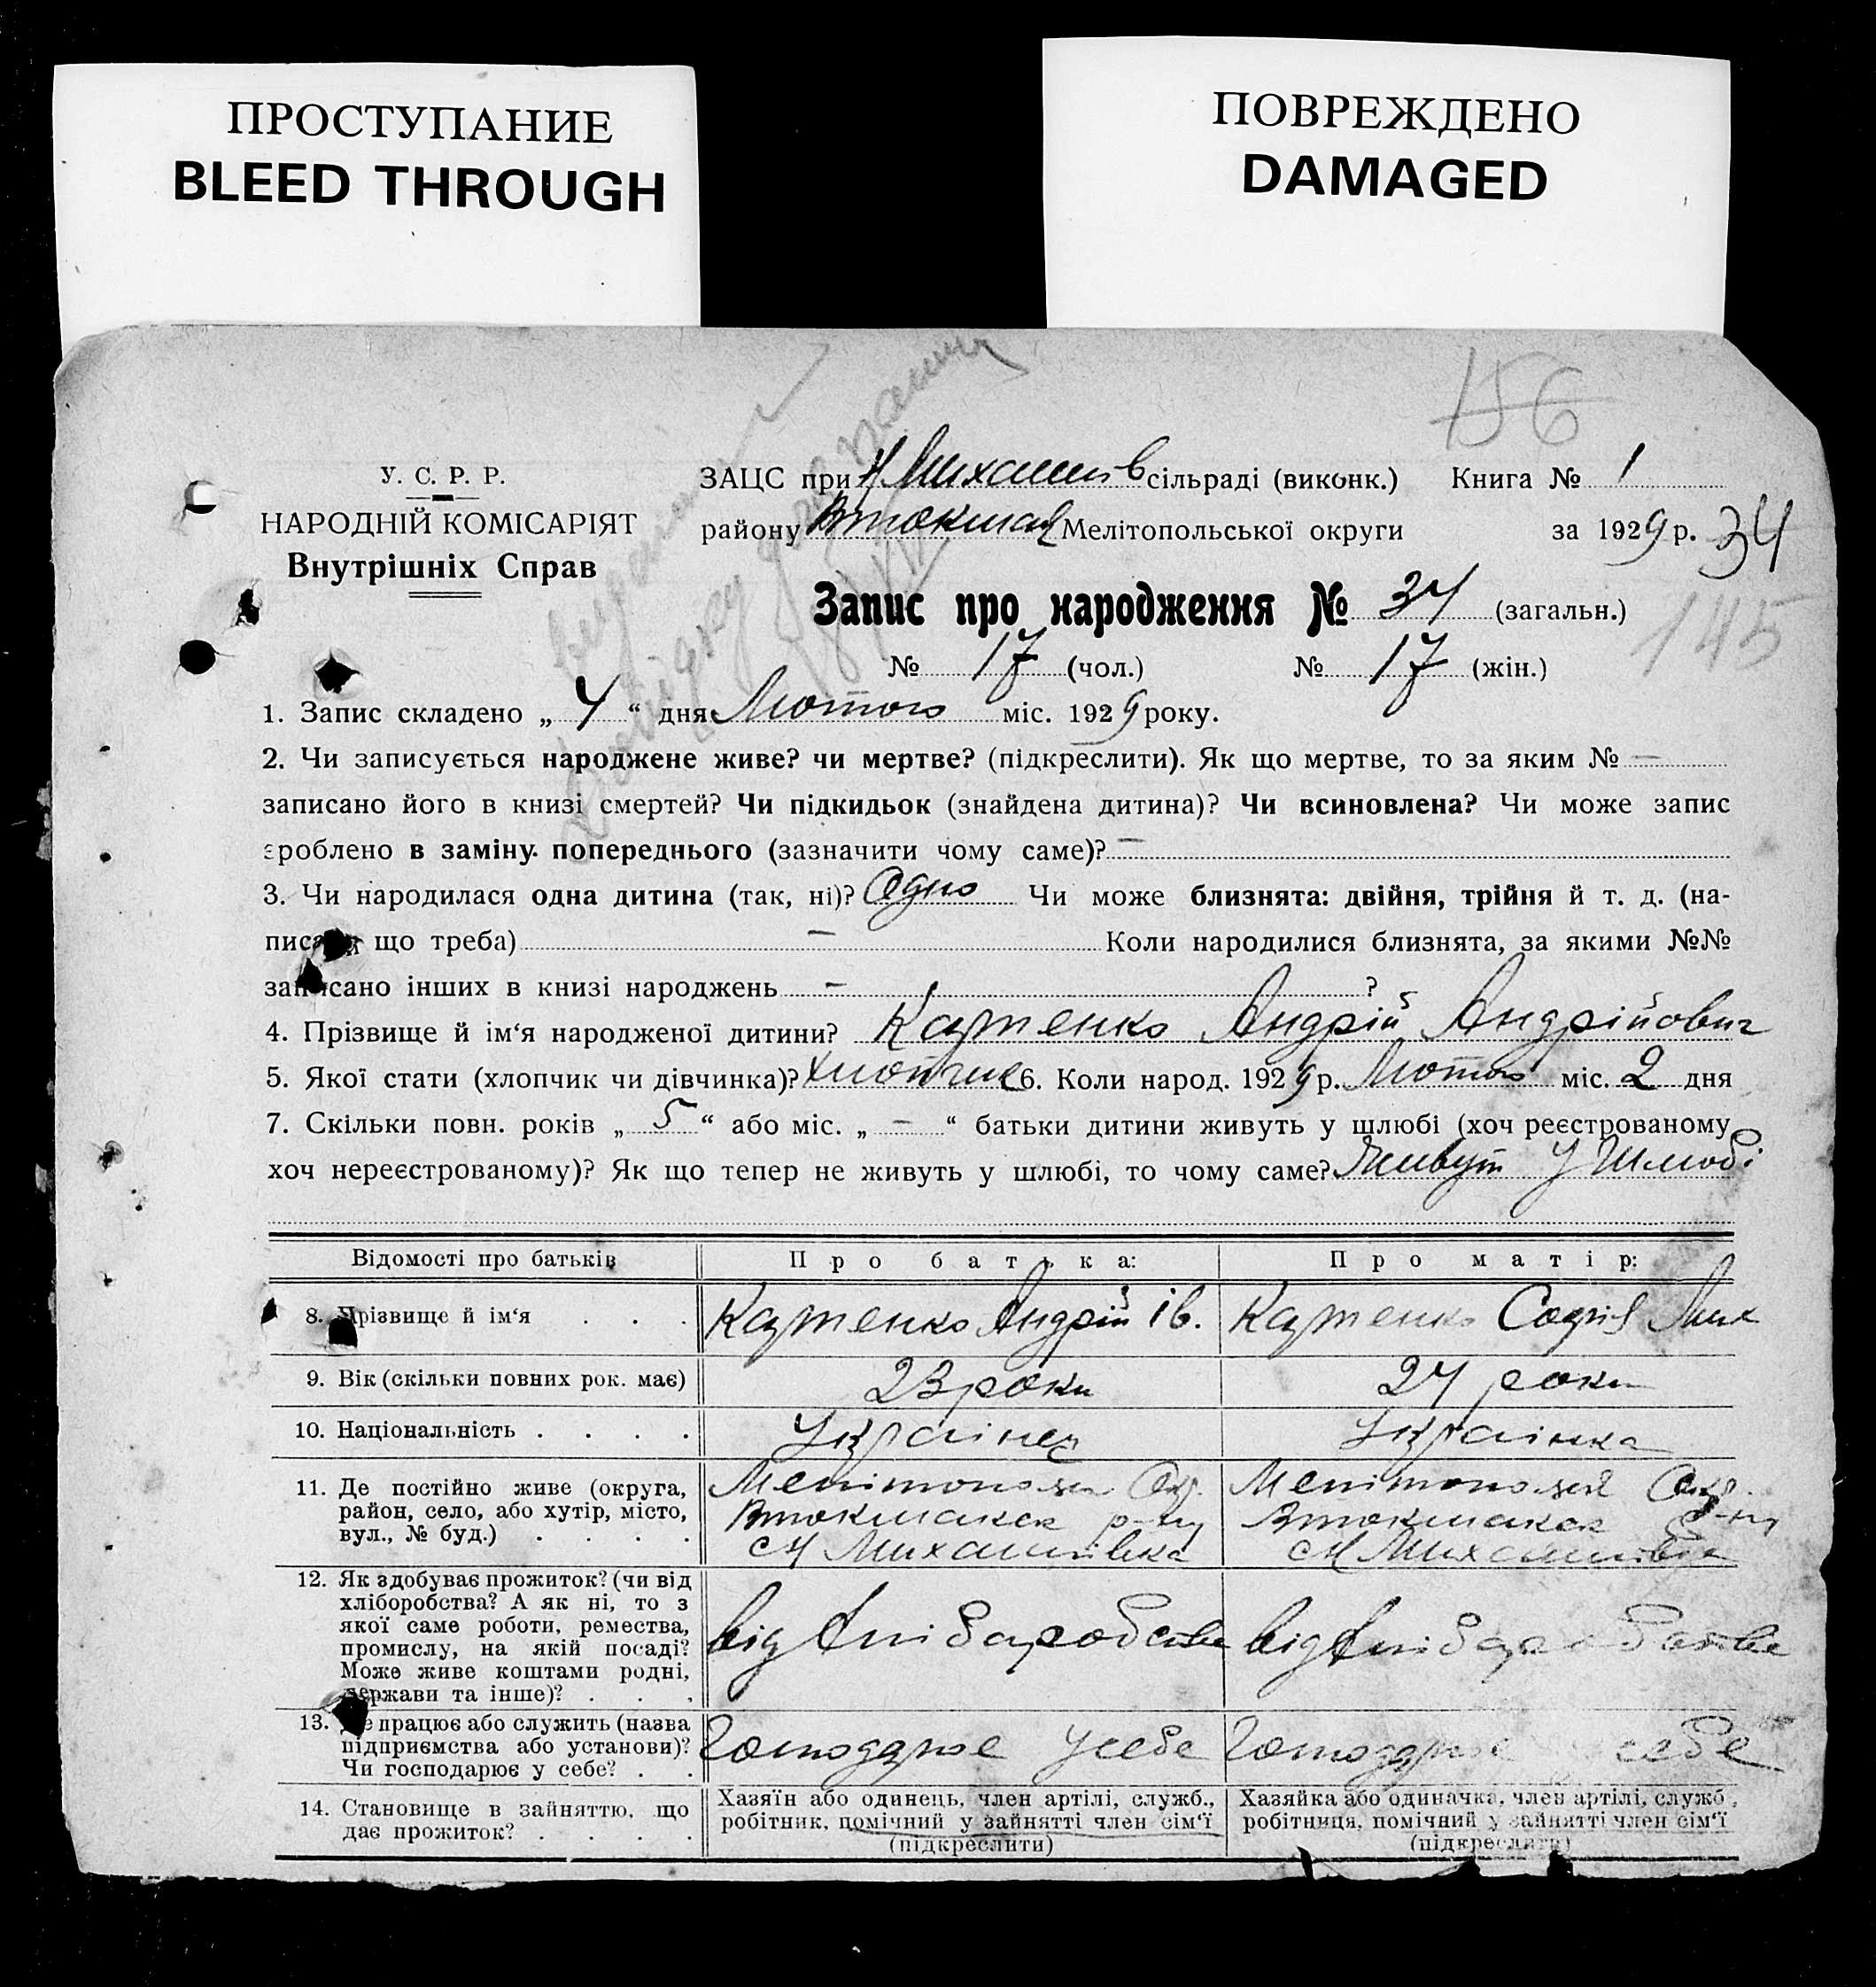 ПРОСТУПАНИЕ
BLEED THROUGH
ПОВРЕЖДЕНО
DAMAGED
156
У. С. Р. Р.
НАРОДНІЙ КОМІСАРІЯТ
Внутрішніх Справ
ЗАЦС при Н Михайлів сільраді (виконк.) Книга № 1
району Втокмац Мелітопольської округи за 1929 р. 34
Запис про народження № 34 (загальн.)
145
№ 17 (чол.) № 17 (жін.)
1. Запис складено „ 4 “ дня Лютого міс. 1929 року.
2. Чи записується народжене живе? чи мертве? (підкреслити). Як що мертве, то за яким № —
записано його в книзі смертей? Чи підкидьок (знайдена дитина)? Чи всиновлена? Чи може запис
зроблено в заміну попереднього (зазначити чому саме)? —
3. Чи народилася одна дитина (так, ні)? Одно Чи може близнята: двійня, трійня й т. д. (на-
писати що треба) — Коли народилися близнята, за якими №№
записано інших в книзі народжень — ?
4. Прізвище й ім‘я народженої дитини? Андрій Андрійович
5. Якої стати (хлопчик чи дівчинка)? Хлопчик 6. Коли народ. 1929 р. Лютого міс. 2 дня
7. Скільки повн. років „ 5 “ або міс. „ — “ батьки дитини живуть у шлюбі (хоч реєстрованому
хоч нереєстрованому)? Як що тепер не живуть у шлюбі, то чому саме? Живуть У Шлюбі
Відомості про батьків Про батька: Про матір:
8. Прізвище й ім‘я . . . Андрій Ів. Софія Мих
9. Вік (скільки повних рок. має) 23 роки 24 роки
10. Національність . . . . Українец Українка
11. Де постійно живе (округа,
район, село, або хутір, місто,
вул., № буд.) . . . .
Мелітопольск Окр.
Втокмацьк р-ну
с Н Михайлівка
Мелітопольск Окр.
Втокмацьк р-ну
с Н Михайлівка
12. Як здобуває прожиток? (чи від
хліборобства? А як ні, то з
якої саме роботи, ремества,
промислу, на якій посаді?
Може живе коштами родні,
держави та інше)? . . .
від хліборобства
від хліборобства
13. Де працює або служить (назва
підприємства або установи)?
Чи господарює у себе? . .
Господарює у себе
Господарює у себе
14. Становище в зайняттю, що
дає прожиток? . . . .
Хазяїн або одинець, член артілі, служб.,
робітник, помічний у зайнятті член сім‘ї
(підкреслити)
Хазяйка або одиначка, член артілі, служб.,
робітниця, помічний у зайнятті член сім‘ї
(підкреслити)